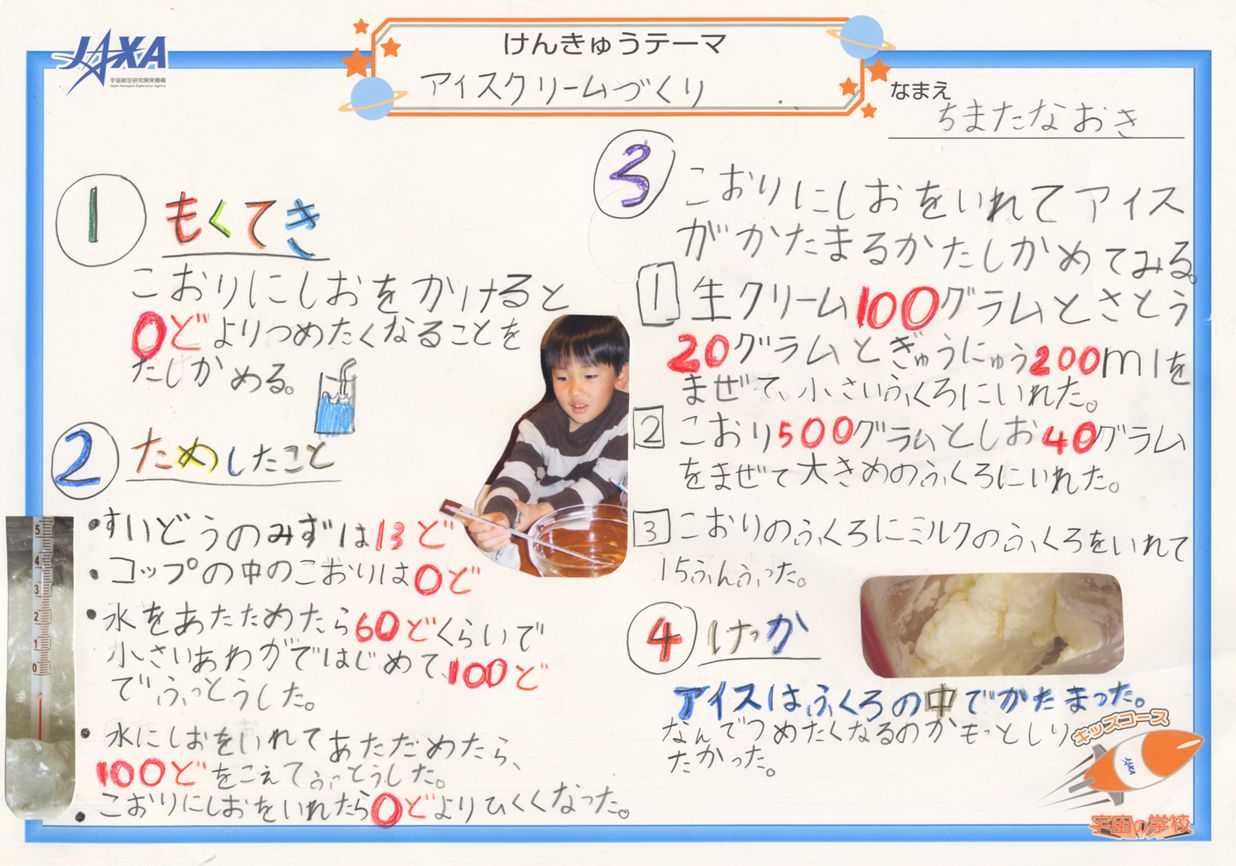 JAXA
宇宙航空研究開発機構
Japan Aerospace Exploration Agency
けんきゅうテーマ
アイスクリームづくり
なまえ
ちまたなおき
1 もくてき
こおりにしおをかけると
0どよりつめたくなることを
たしかめる。
2 ためしたこと
・すいどうのみずは13ど
・コップの中のこおりは0ど
・水をあたためたら60どくらいで
小さいあわがではじめて、100ど
でふっとうした。
・水にしおをいれてあただめたら、
100どをこえてふっとうした。
・こおりにしおをいれたら0どよりひくくなった。
5
4
3
2
1
0
3 こおりにしおをいれてアイス
がかたまるかたしかめてみる。
1 生クリーム100グラムとさとう
20グラムとぎゅうにゅう200mlを
まぜて、小さいふくろにいれた。
2 こおり500グラムとしお40グラム
をまぜて大きめのふくろにいれた。
3 こおりのふくろにミルクのふくろをいれて
15ふんふった。
4 けっか
アイスはふくろの中でかたまった。
なんでつめたくなるのかもっとしり
たかった。
キッズコース
JAXA
宇宙の学校